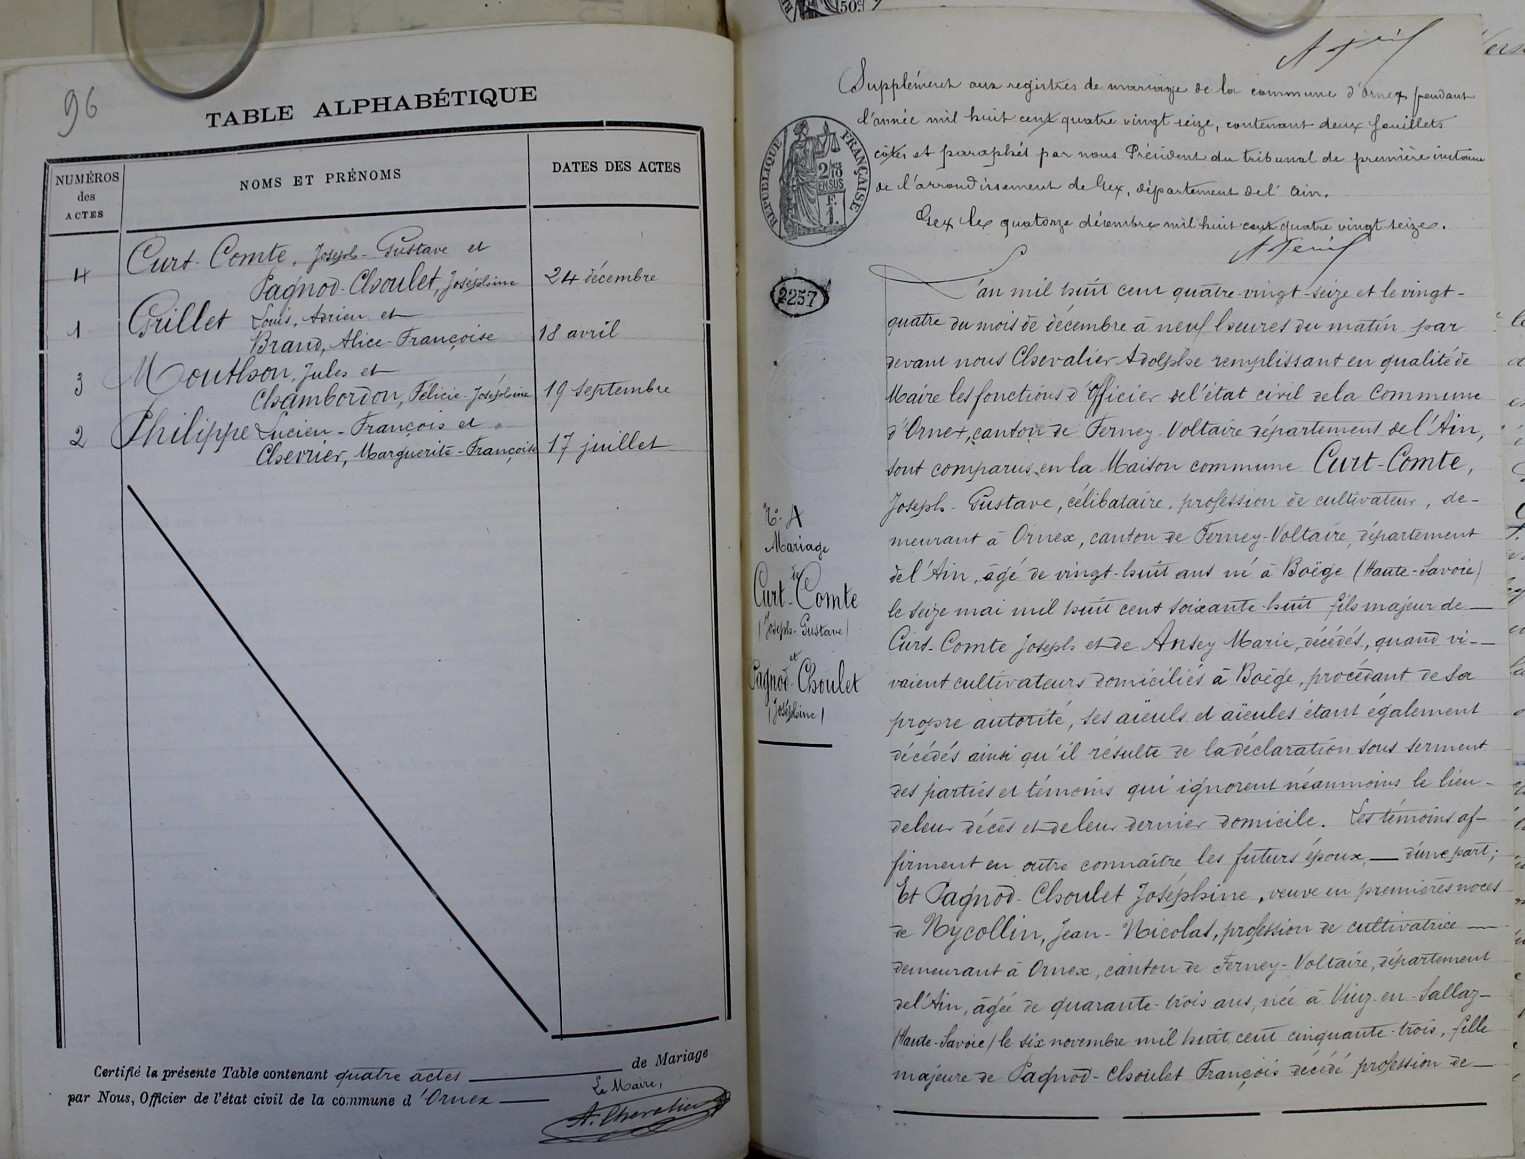 96
TABLE ALPHABÉTIQUE
NUMÉROS
des
ACTES
NOMS ET PRÉNOMS
DATES DES ACTES
4
Curt-Comte, Joseph-Gustave et
Pagnod-Choulet, Joséphine
24 décembre
1
Grillet Louis, Adrien et
Brand, Alice-Françoise
18 avril
3
Monthon, Jules et
Chambordon, Félicie-Joséphine
19 septembre
2
Philippe Lucien-François et
Chevrier, Marguerite-Françoise
17 juillet
Certifié la présente Table contenant quatre actes de Mariage
par Nous, Officier de l'état civil de la commune d'Ornex
Le Maire,
A. Chevalier
Supplément aux registres de mariage de la commune d'Ornex pendant
l'année mil huit cent quatre vingt seize, contenant deux feuillets
côtés et paraphés par nous Président du tribunal de première instance
de l'arrondissement de Gex, département de l'Ain.
Gex le quatorze décembre mil huit cent quatre vingt seize.
RÉPUBLIQUE FRANÇAISE
2257
L'an mil huit cent quatre-vingt-seize et le vingt-
quatre du mois de décembre à neuf heures du matin par
devant nous Chevalier Adolphe remplissant en qualité de
Maire les fonctions d'Officier de l'état civil de la Commune
d'Ornex, canton de Ferney-Voltaire département de l'Ain,
sont comparus en la Maison commune Curt-Comte,
Joseph-Gustave, célibataire, profession de cultivateur, de-
meurant à Ornex, canton de Ferney-Voltaire, département
de l'Ain, âgé de vingt-huit ans né à Boëge (Haute-Savoie)
le seize mai mil huit cent soixante-huit fils majeur de
Curt-Comte Joseph et de Ansey Marie, décédés, quand vi-
vaient cultivateurs domiciliés à Boëge, procédant de sa
propre autorité, ses aïeuls et aïeules étant également
décédés ainsi qu'il résulte de la déclaration sous serment
des parties et témoins qui ignorent néanmoins le lieu
de leur décès et de leur dernier domicile. Les témoins af-
firment en outre connaître les futurs époux, d'une part;
Et Pagnod-Choulet Joséphine, veuve en premières noces
de Nycollin, Jean-Nicolas, profession de cultivatrice
demeurant à Ornex, canton de Ferney-Voltaire, département
de l'Ain, âgée de quarante-trois ans, née à Viuz-en-Sallaz
(Haute-Savoie) le six novembre mil huit cent cinquante-trois, fille
majeure de Pagnod-Choulet François décédé profession de
No. 4
Mariage
de
Curt-Comte
(Joseph-Gustave)
et
Pagnod-Choulet
(Joséphine)